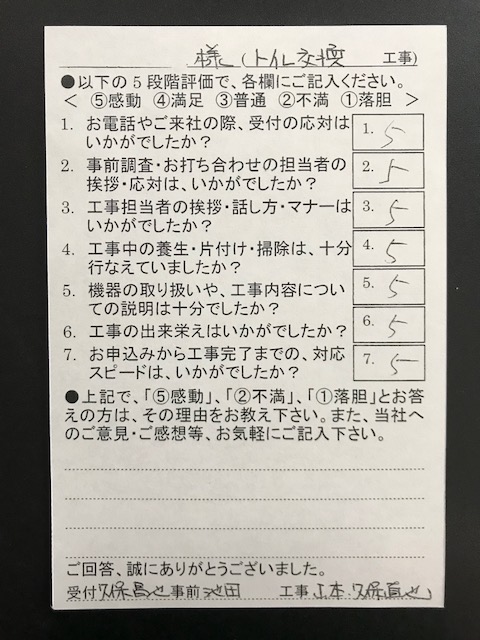 様 (トイレ交換 工事)
●以下の5段階評価で、各欄にご記入ください。
< ⑤感動 ④満足 ③普通 ②不満 ①落胆 >
1. お電話やご来社の際、受付の応対は
いかがでしたか?
1. 5
2. 事前調査・お打ち合わせの担当者の
挨拶・応対は、いかがでしたか?
2. 5
3. 工事担当者の挨拶・話し方・マナーは
いかがでしたか?
3. 5
4. 工事中の養生・片付け・掃除は、十分
行なえていましたか?
4. 5
5. 機器の取り扱いや、工事内容につい
ての説明は十分でしたか?
5. 5
6. 工事の出来栄えはいかがでしたか?
6. 5
7. お申込みから工事完了までの、対応
スピードは、いかがでしたか?
7. 5
●上記で、「⑤感動」、「②不満」、「①落胆」とお答
えの方は、その理由をお教え下さい。また、当社へ
のご意見・ご感想等、お気軽にご記入下さい。
ご回答、誠にありがとうございました。
受付 久保昌也 事前 池田 工事 久保直也